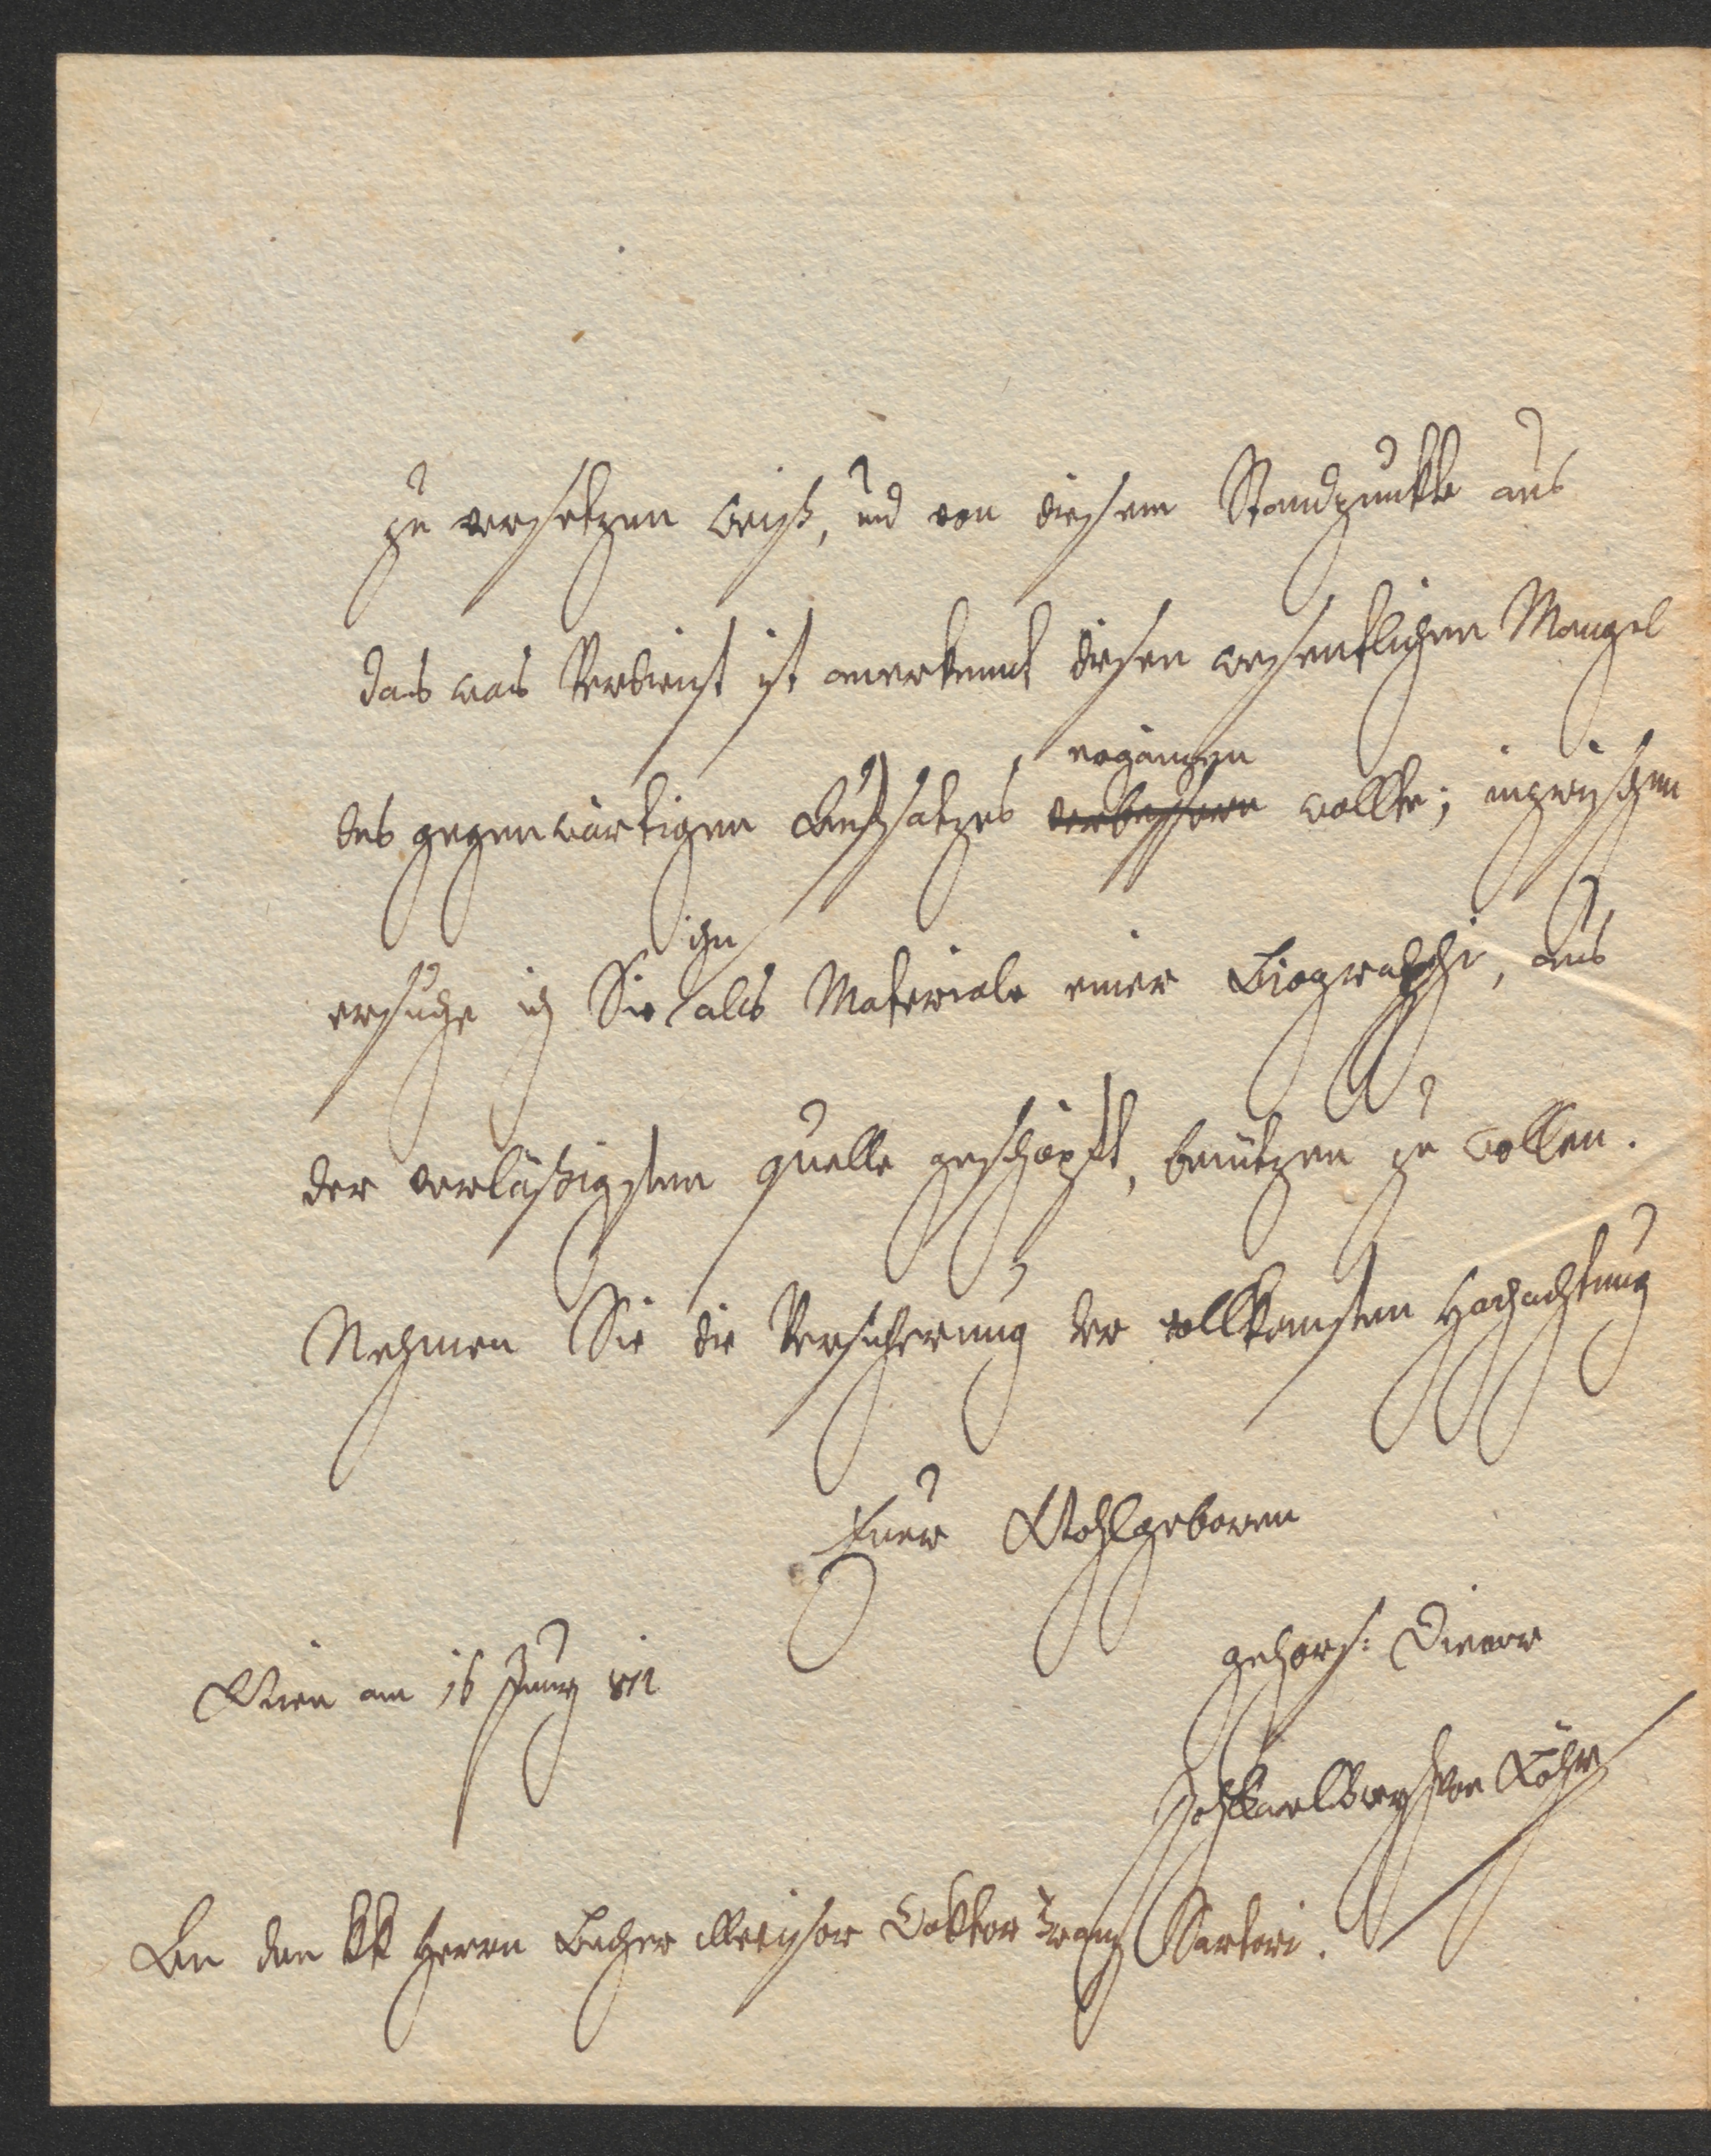 zu versetzen weiß, und von diesem Standpunkte aus
das was Verdienst ist anerkennt diesen wesentlichen Mangel
ergänzen
des gegenwärtigen Aufsatzes verbessern wollte; inzwischen
ihn
ersuche ich Sie als Materiale einer Biographie, aus
der verläßigsten Quelle geschöpft, benützen zu wollen.
Nehmen Sie die Versicherung der vollkomsten Hochachtung
Euer Wohlgeboren
gehors: Diener
Wien am 16 Juny 812
von
An den kk Herrn Bücher Revisor Doktor Franz Sartori.